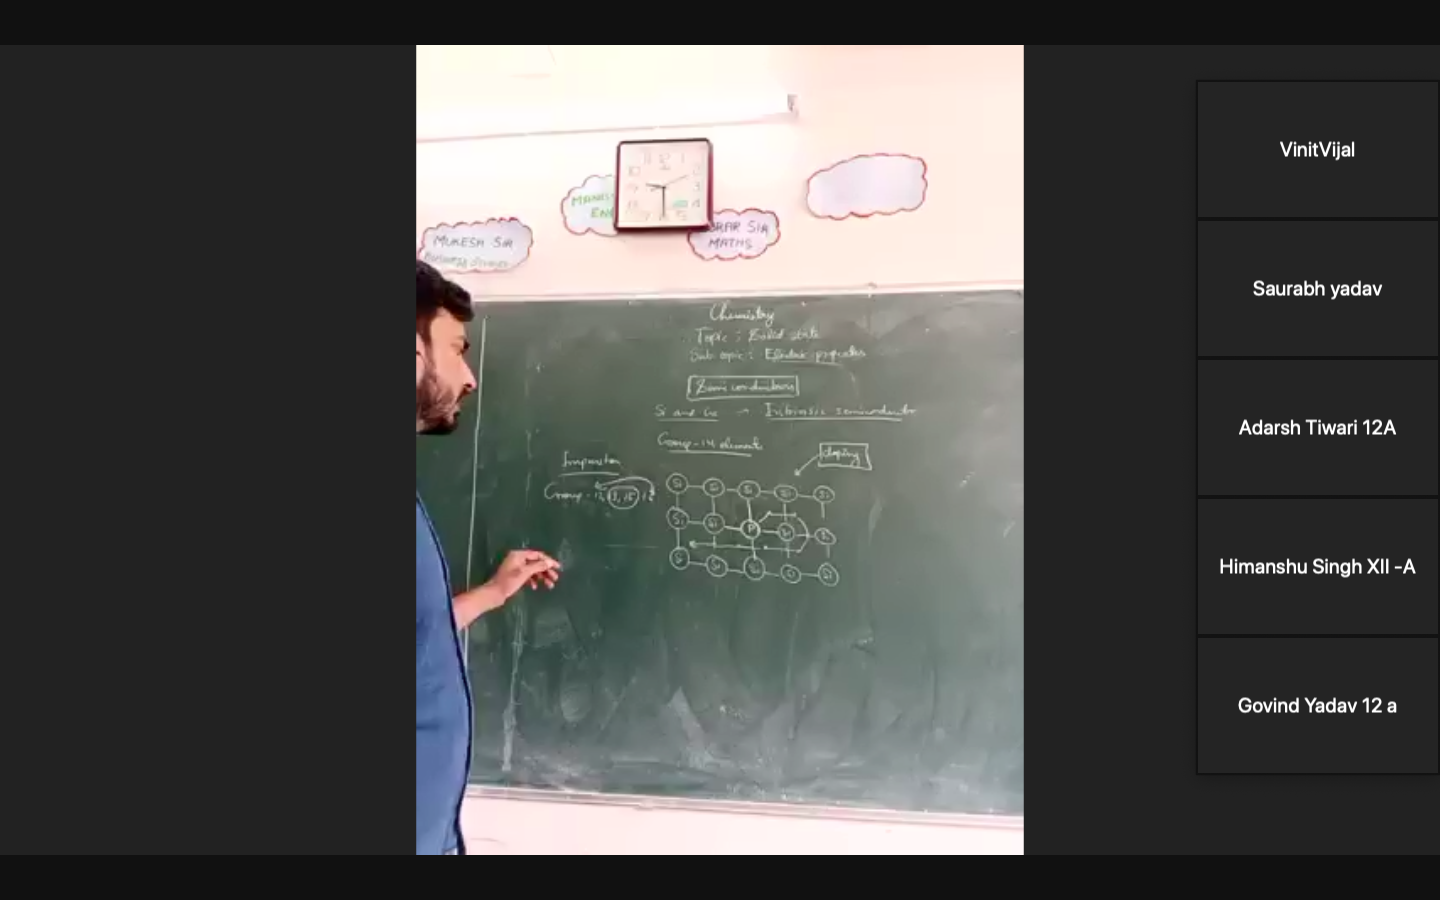 MUKESH SIR
MANIS
EN
RAR SIR
MATHS
Chemistry
Topic : Solid state
Sub topic : Electric properties
Semiconductors
Si and Ge → Intrinsic semiconductor
Group-14 elements
doping
Group - 12 13, 15
Si Si Si Si Si
Si Si P Si Si
Si Si Si Si Si
VinitVijal
Saurabh yadav
Adarsh Tiwari 12A
Himanshu Singh XII -A
Govind Yadav 12 a